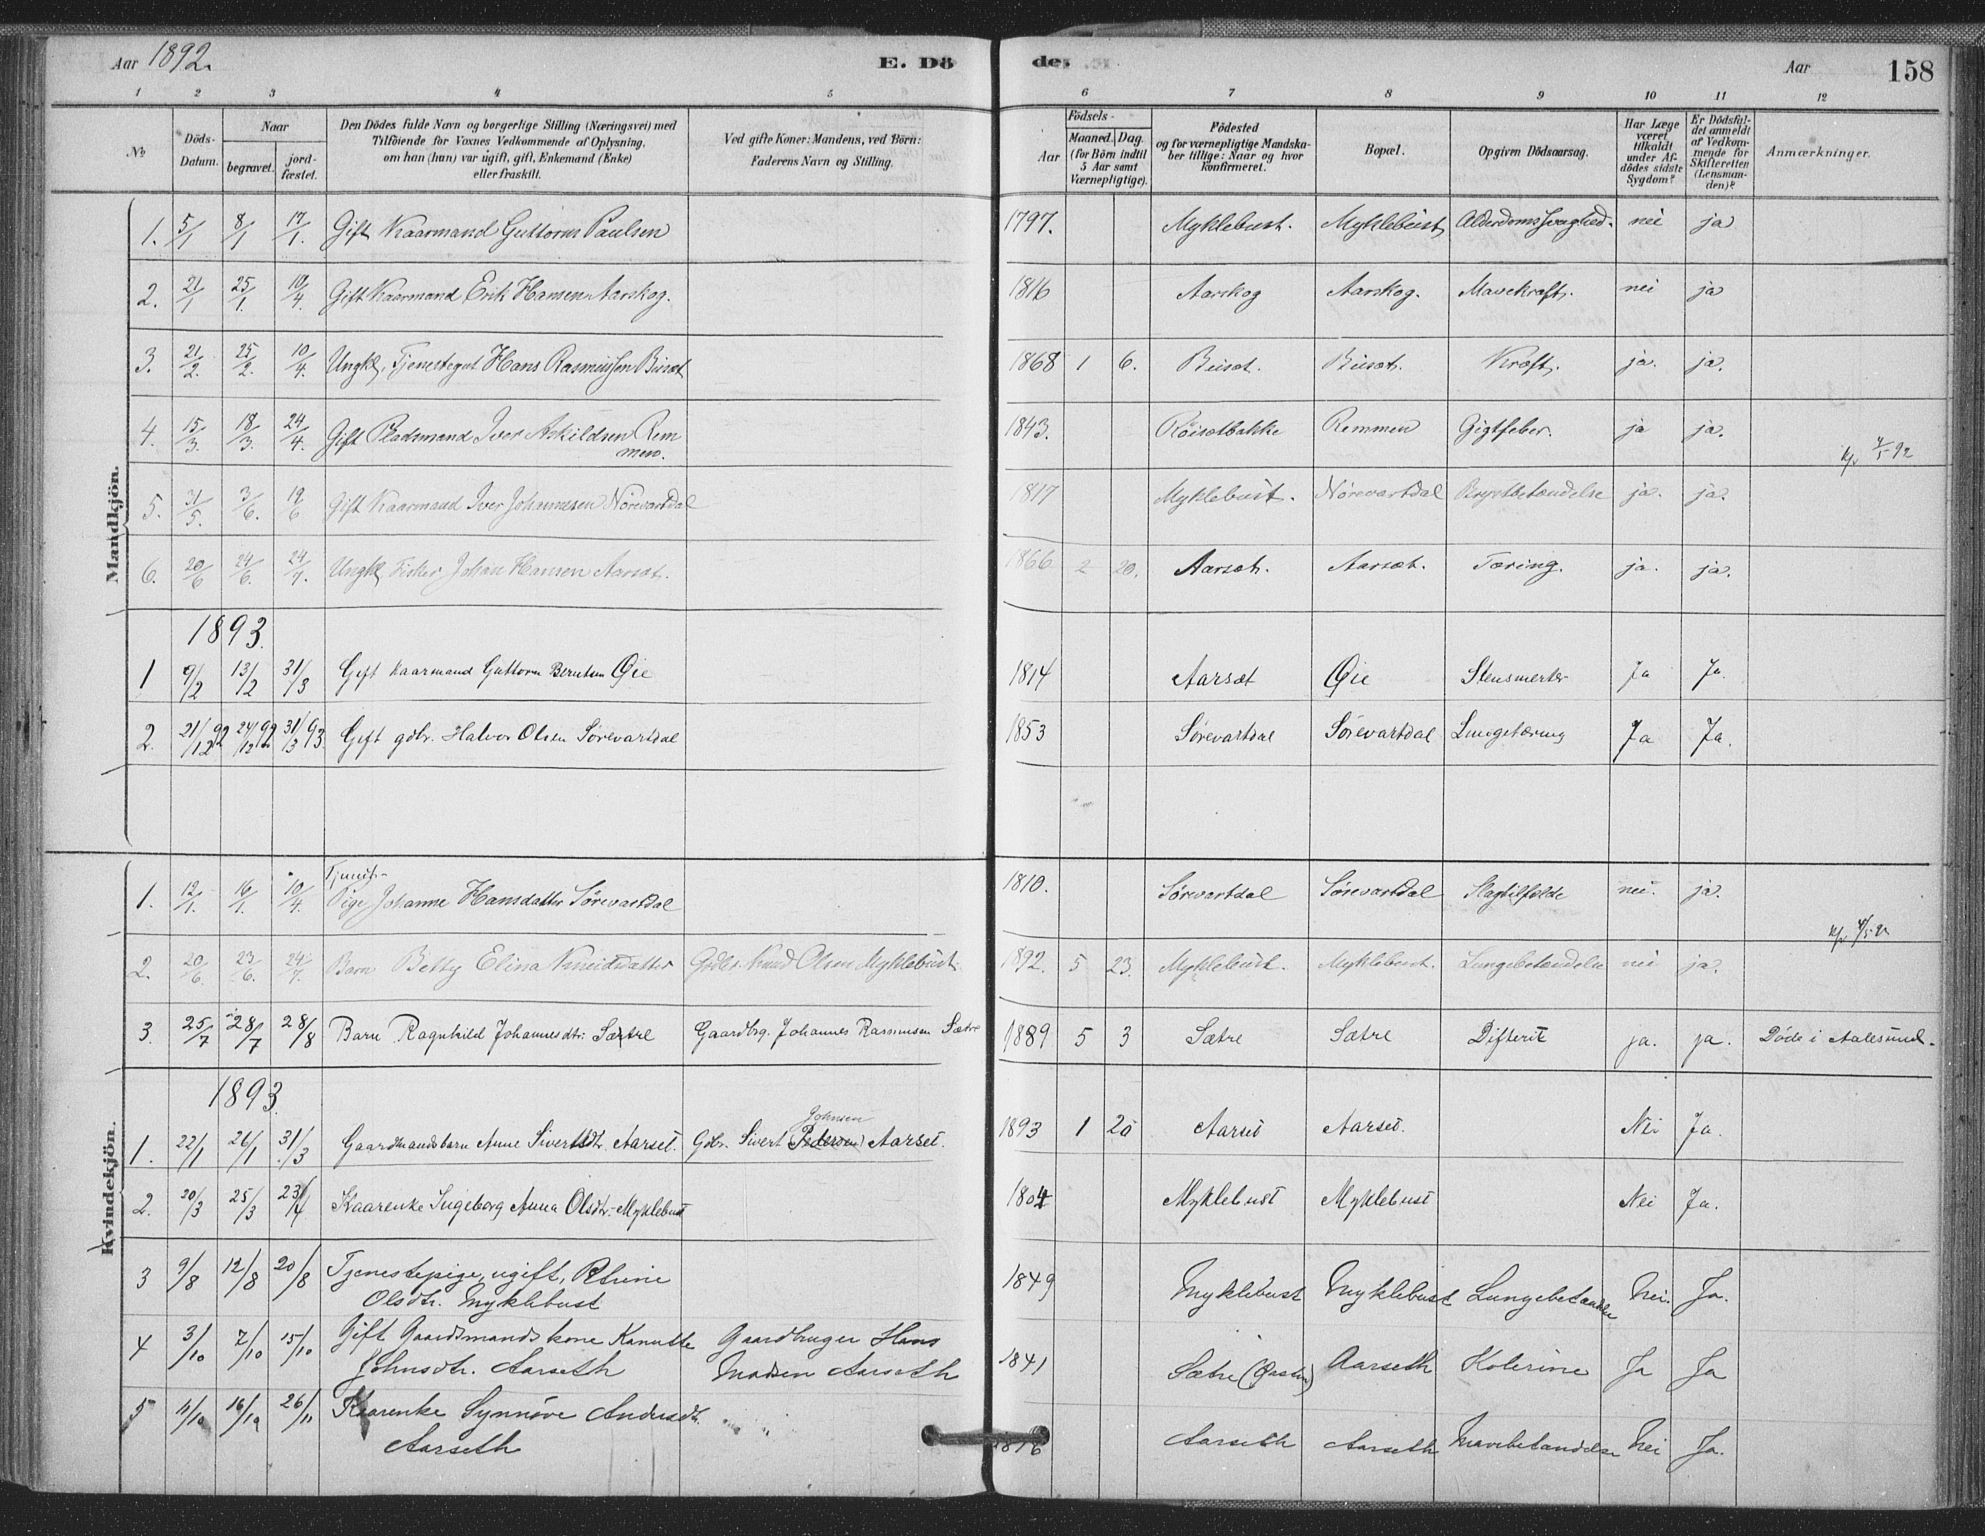 Aar 1892. E. Dö de: Aar 158
1 2 3 4 5 6 7 8 9 10 11 12
No Döds-Datum. Naar begravet. jord-fæstet. Den Dödes fulde Navn og borgerlige Stilling (Næringsvei) med Tilföiende for Voxnes Vedkommende af Oplysning, om han (hun) var ugift, gift, Enkemand (Enke) eller fraskilt. Ved gifte Koner: Mandens, ved Börn: Faderens Navn og Stilling. Födsels- Aar Maaned. Dag. (for Börn indtil 5 Aar samt Værnepligtige). Födested og for værnepligtige Mandska-ber tillige: Naar og hvor konfirmeret. Bopæl. Opgiven Dödsaarsag. Har Læge været tilkaldt under Af-dödes sidste Sygdom? Er Dödsfal-det anmeldt af Vedkom-mende for Skifteretten (Lensman-den)? Anmærkninger.
Mandkjön.
1. 5/1 8/1 17/1. Gift Kaarmand Guttorm Paulsen 1797. Myklebust. Myklebust Alderdomssvaghed. nei ja
2. 21/1 25/1. 10/4. Gift Kaarmand Erik Hansen Aarskog. 1816 Aarskog Aarskog. Mavekræft. nei ja
3. 21/2. 25/2. 10/4. Ungk. Tjenestegut Hans Rasmussen Busæt 1868 1 6. Busæt. Busæt. Kræft. ja. ja.
4. 15/3. 18/3. 24/4. Gift Pladsmand Iver Askildsen Rem
men. 1843. Röisetbakke Remmen Gigtfeber. ja ja.
5. 31/5. 3/6. 19/6 Gift Kaarmand Iver Johannesen Nörevartdal 1817 Myklebust. Nörevartdal Brystbetændelse ja. ja.
6. 20/6 24/6. 24/7. Ungk. Fisker Johan Hansen Aarsæt. 1866 2 20. Aarsæt. Aarsæt. Tæring. ja. ja.
1893.
1 9/2 13/2 31/3 Gift Kaarmand Guttorm Berntsen Øie 1814 Aarsæt Øie Stensmerter Ja Ja.
2. 21/12 92 24/12 92 31/3 93. Gift gdbr. Halvor Olsen Sørevartdal 1853 Sørevartdal Sørevartdal Lungetæring Ja Ja.
Kvindekjön.
1. 12/1. 16/1. 10/4. Tjenest-
Pige Johanne Hansdatter Sörevartdal 1810. Sörevartdal Sörevartdal Slagtilfælde nei. ja.
2. 20/6. 23/6. 24/7. Barn Betty Elina Knudsdatter Gdbr. Knud Olsen Myklebust. 1892. 5 23. Myklebust. Myklebust. Lungebetændelse nei ja.
3 25/7 28/7 28/8 Barn Ragnhild Johannesdtr. Sætre Gaardbrg. Johannes Rasmusen Sætre 1889 5 3 Sætre Sætre Difterit ja. ja. Døde i Aalesund.
1893.
1. 22/1 26/1 31/3 Gaardmandsbarn Anne Sivertsdtr. Aarset. Gdbr. Sivert Pedersen Johnsen Aarset. 1893 1 20 Aarset Aarset. Nei Ja.
2. 20/3 25/3 23/4 Kaarenke Ingeborg Anna Olsdtr. Myklebust 1804 Myklebust Myklebust Nei Ja.
3 9/8 12/8 20/8 Tjenestepige, ugift, Petrine
Olsdtr. Myklebust 1849 Myklebust Myklebust Lungebetændelse Nei. Ja.
4 3/10 7/10 15/10 Gift Gaardsmandskone Kanutte
Johnsdtr. Aarseth Gaardbruger Hans
Madsen Aarseth 1841 Sætre Aarseth Kolerine Ja Ja
5 11/10 16/10 26/11 Kaarenke Synnøve Andersdtr.
Aarseth Aarseth Aarseth Mavebetændelse Nei Ja.